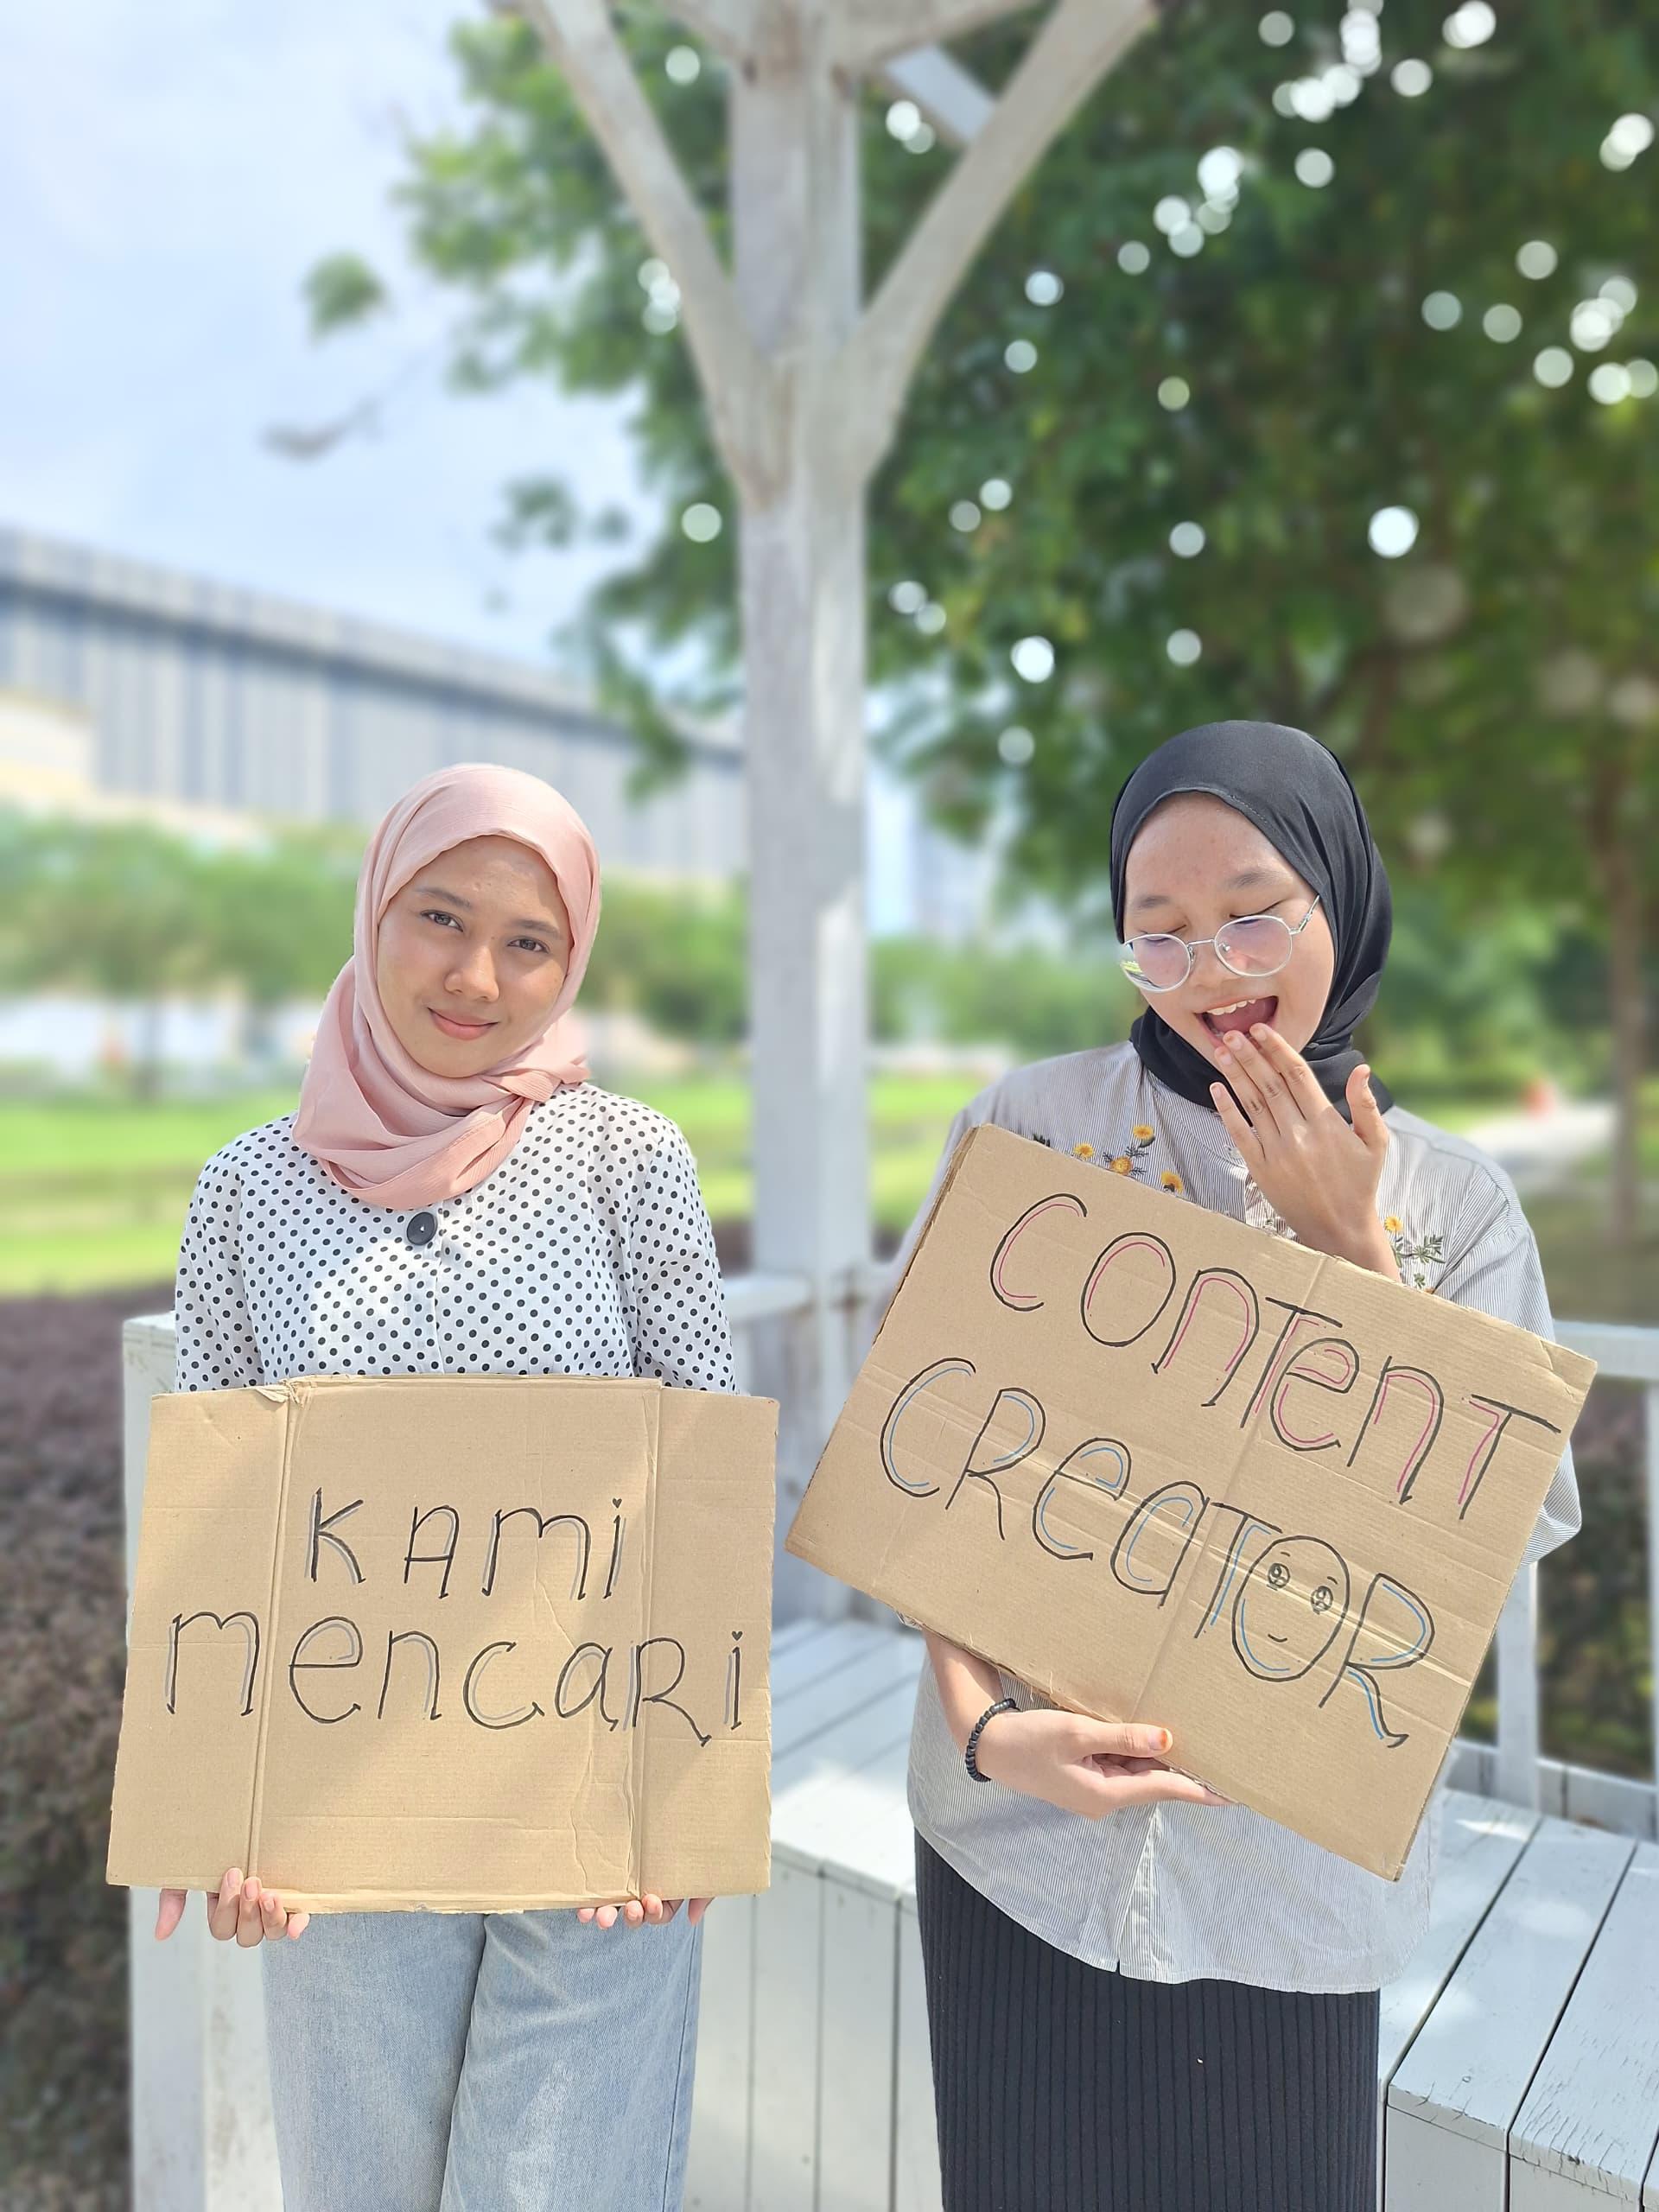 KAMi
mencaRi
CONTenT
CReaTOR